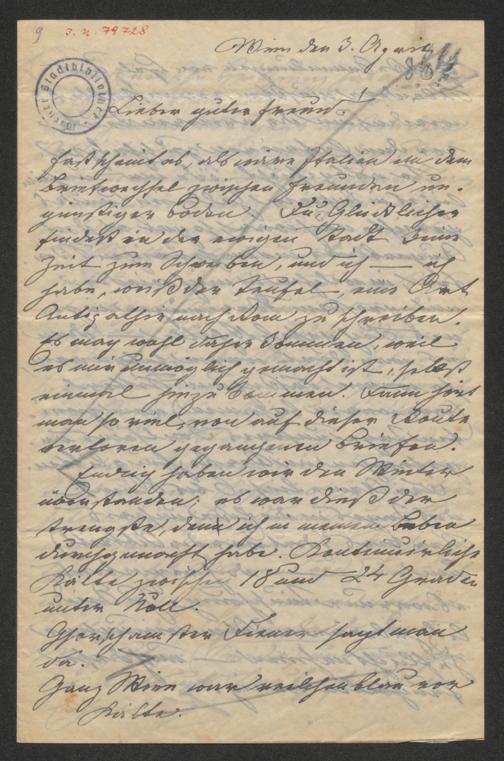 9
J. N. 79728
Wien den 3. April
Lieber guter Freund!
Fast scheint es, als wäre Italien ein dem
Briefwechsel zwischen Freunden un-
günstiger Boden. Du, Glücklicher
findest in der ewigen Stadt keine
Zeit zum Schreiben, und ich — ich
habe, weiß der Teufel, eine Art
Antipathie nach Rom zu schreiben.
Es mag wohl daher kommen, weil
es mir unmöglich gemacht ist, selbst
einmal hinzukommen. Dann hört
man so viel von auf dieser Route
verloren gegangenen Briefen.
Endlich haben wir den Winter
überstanden; es war dieß der
strengste, den ich in meinem Leben
durchgemacht habe. Kontinuirliche
Kälte zwischen 18 und 24 Graden
unter Null.
Ghorschamster Diener sagt man
da.
Ganz Wien war veilchenblau vor
Kälte.